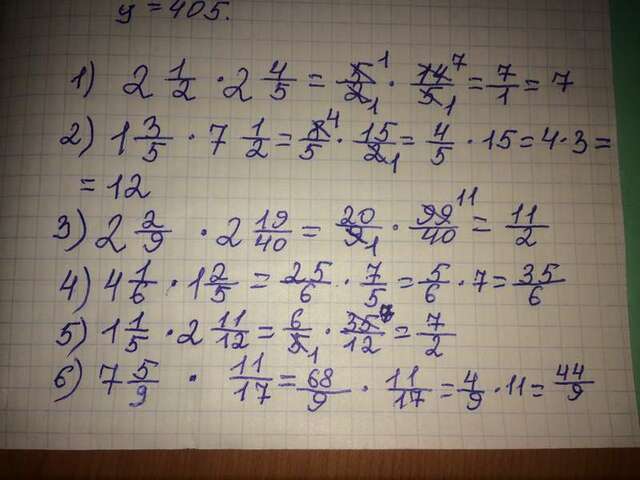 y = 405.
1) 2 1/2 · 2 4/5 = 5/2 1 1 · 14/5 7 1 = 7/1 = 7
2) 1 3/5 · 7 1/2 = 8/5 4 · 15/2 1 = 4/5 · 15 = 4 · 3 =
= 12
3) 2 2/9 · 2 19/40 = 20/9 1 · 99/40 11 = 11/2
4) 4 1/6 · 1 2/5 = 25/6 · 7/5 = 5/6 · 7 = 35/6
5) 1 1/5 · 2 11/12 = 6/5 1 · 35/12 7 = 7/2
6) 7 5/9 · 11/17 = 68/9 · 11/17 = 4/9 · 11 = 44/9